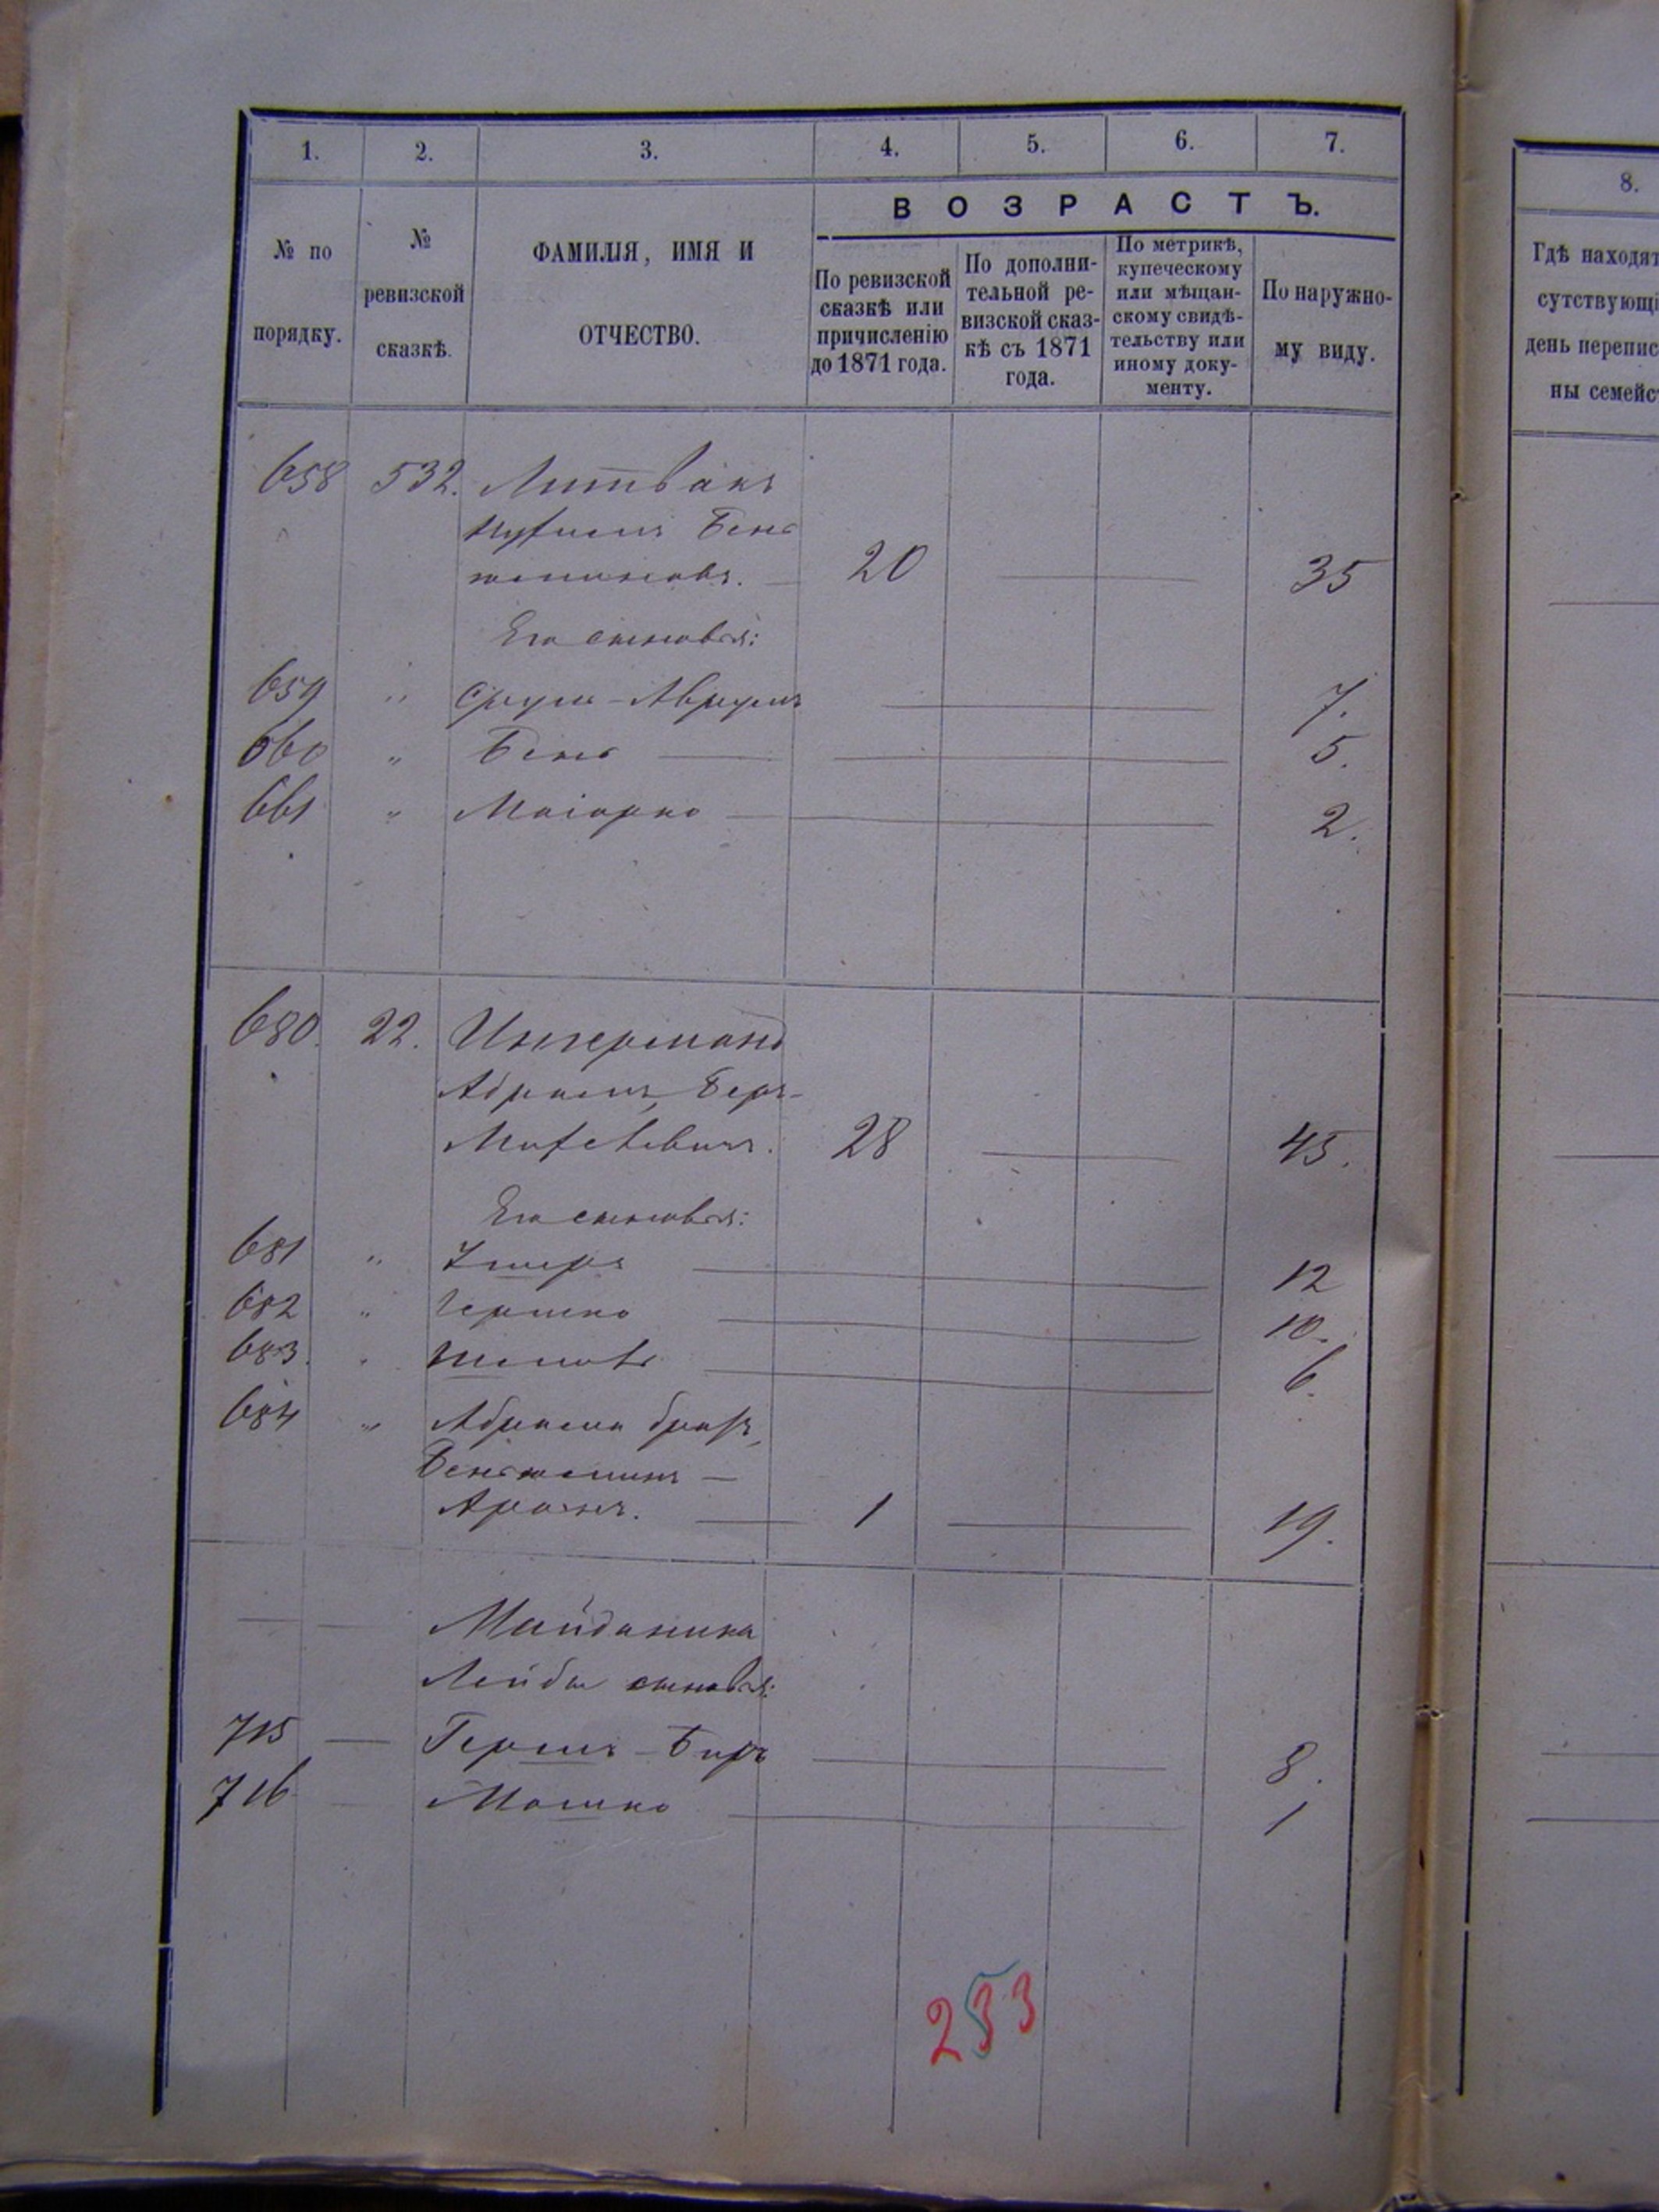 1. 2. 3. 4. 5. 6. 7.
№ по порядку.
№ ревизской сказкѣ.
ФАМИЛІЯ, ИМЯ И ОТЧЕСТВО.
ВОЗРАСТЪ.
По ревизской сказкѣ или причисленію до 1871 года.
По дополни-
тельной ре-
визской сказ-
кѣ съ 1871
года.
По метрикѣ,
купеческому
или мѣщан-
скому свидѣ-
тельству или
иному доку-
менту.
По наружно-
му виду.
658 532. Литвакъ
Бень
20 35
Его сыновья:
659 " Сруль-Аврумъ 7.
660 " Бень 5.
661 " Маіорко 2.
680. 22. Ингерманъ
Абрамъ, Беръ-
28 45.
Его сыновья:
681 " 12
682 " Гершко 10.
683. " 6.
684 " Абрама братъ,
Беньяминъ —
Аронъ. 1 19.
Майданика
Лейбы сыновья:
715 — Гершъ-Беръ 8.
716 Мошко 1
253
8.
Гдѣ находят
сутствующі
день перепис
ны семейс